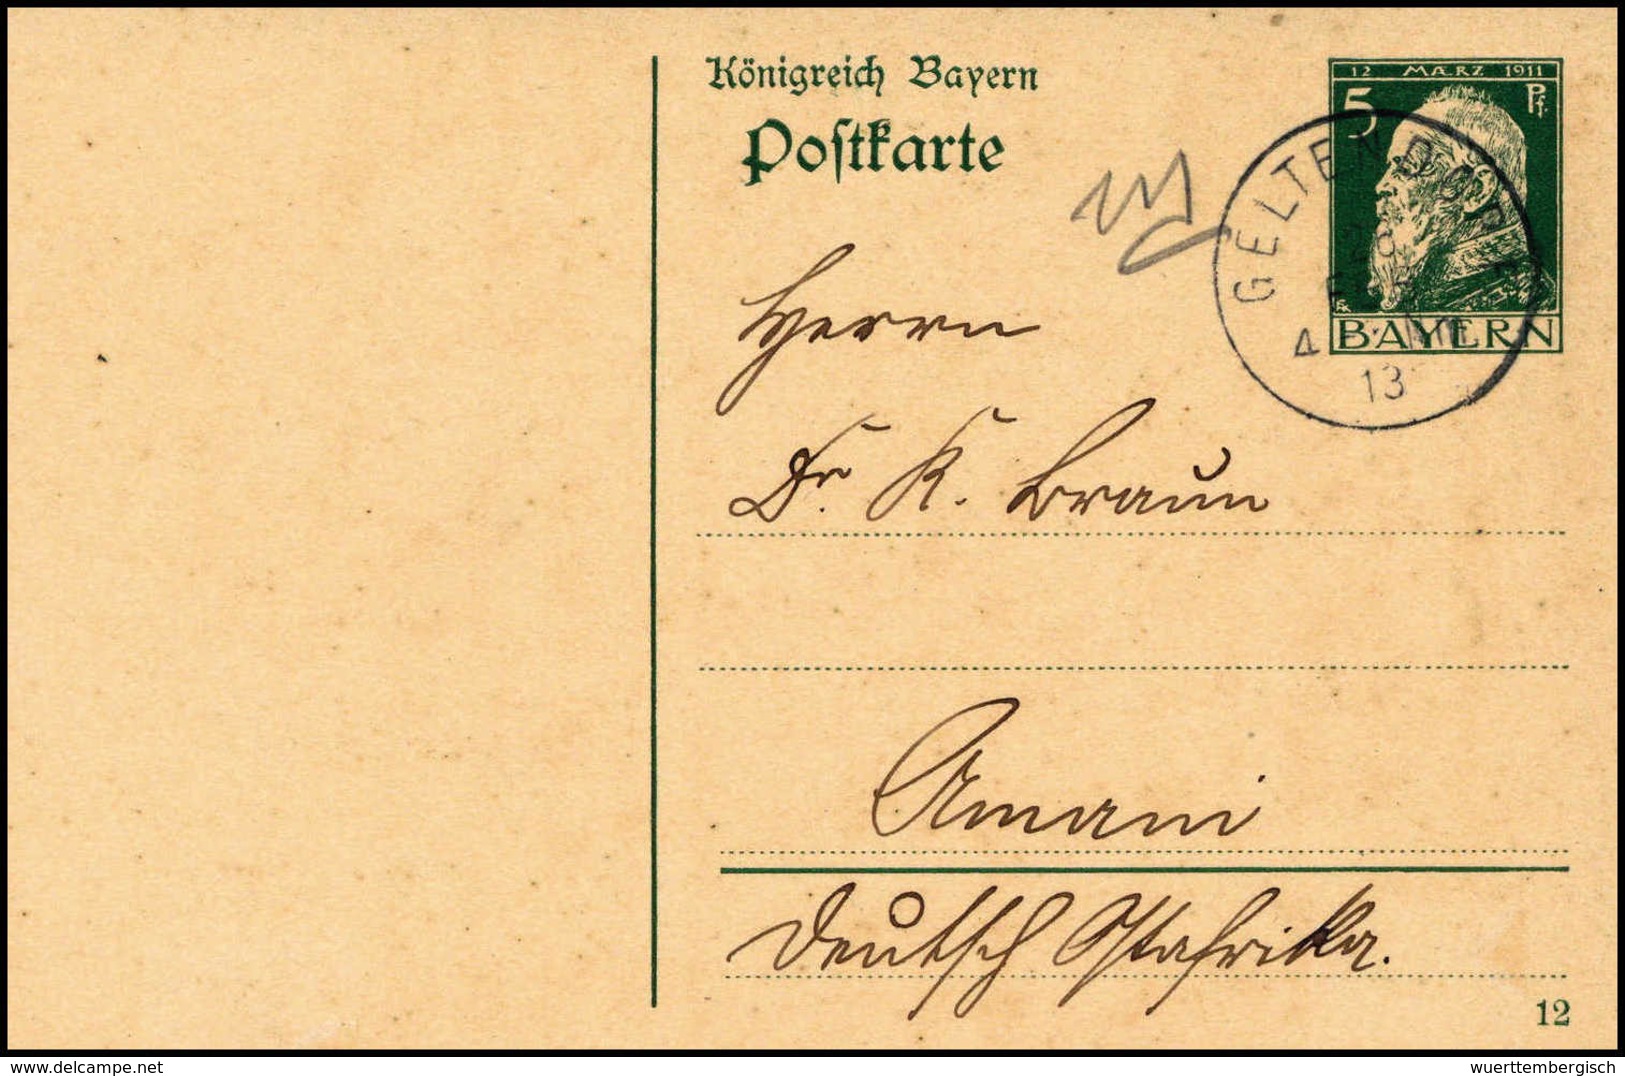 Königreich Bayern
Poſtkarte
12 MÆRZ 1911
5 Pf.
BAYERN
GELTENDORF
13
Herrn
Dr. K. Braun
Amani
Deutsch Ostafrika.
12
www.delcampe.net
wuerttembergisch